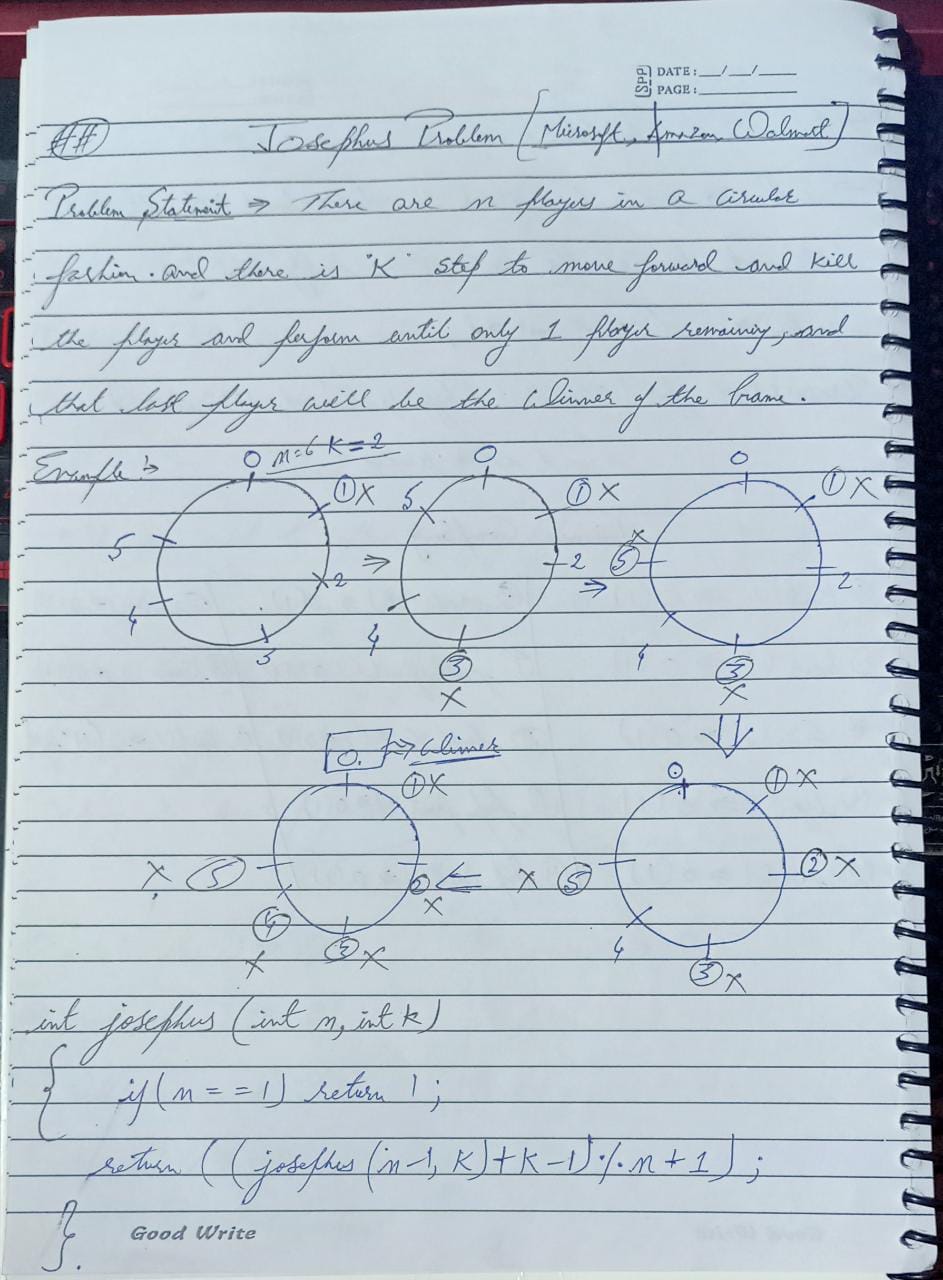 SPP DATE: __/__/____
PAGE: ________
## Josephus Problem [Microsoft, Amazon, Walmart]
Problem Statement ⇒ There are n players in a circular
fashion. and there is "K" step to move forward and kill
the player and perform until only 1 player remaining, and
that last player will be the winner of the Game.
Example →
n=6 K=2
0 0 0
① X 5 ① X ① X
5 2 2 X ⑤ 2
4 3 4 4
③ ③
X X
0. ⇒ winner
① X 0 ① X
X ⑤ 2 X ⑤ ② X
④ X 4
X ③ X ③ X
int josephus (int n, int k)
{
if (n == 1) return 1;
return ((josephus (n-1, k) + k-1) % n + 1);
}.
Good Write